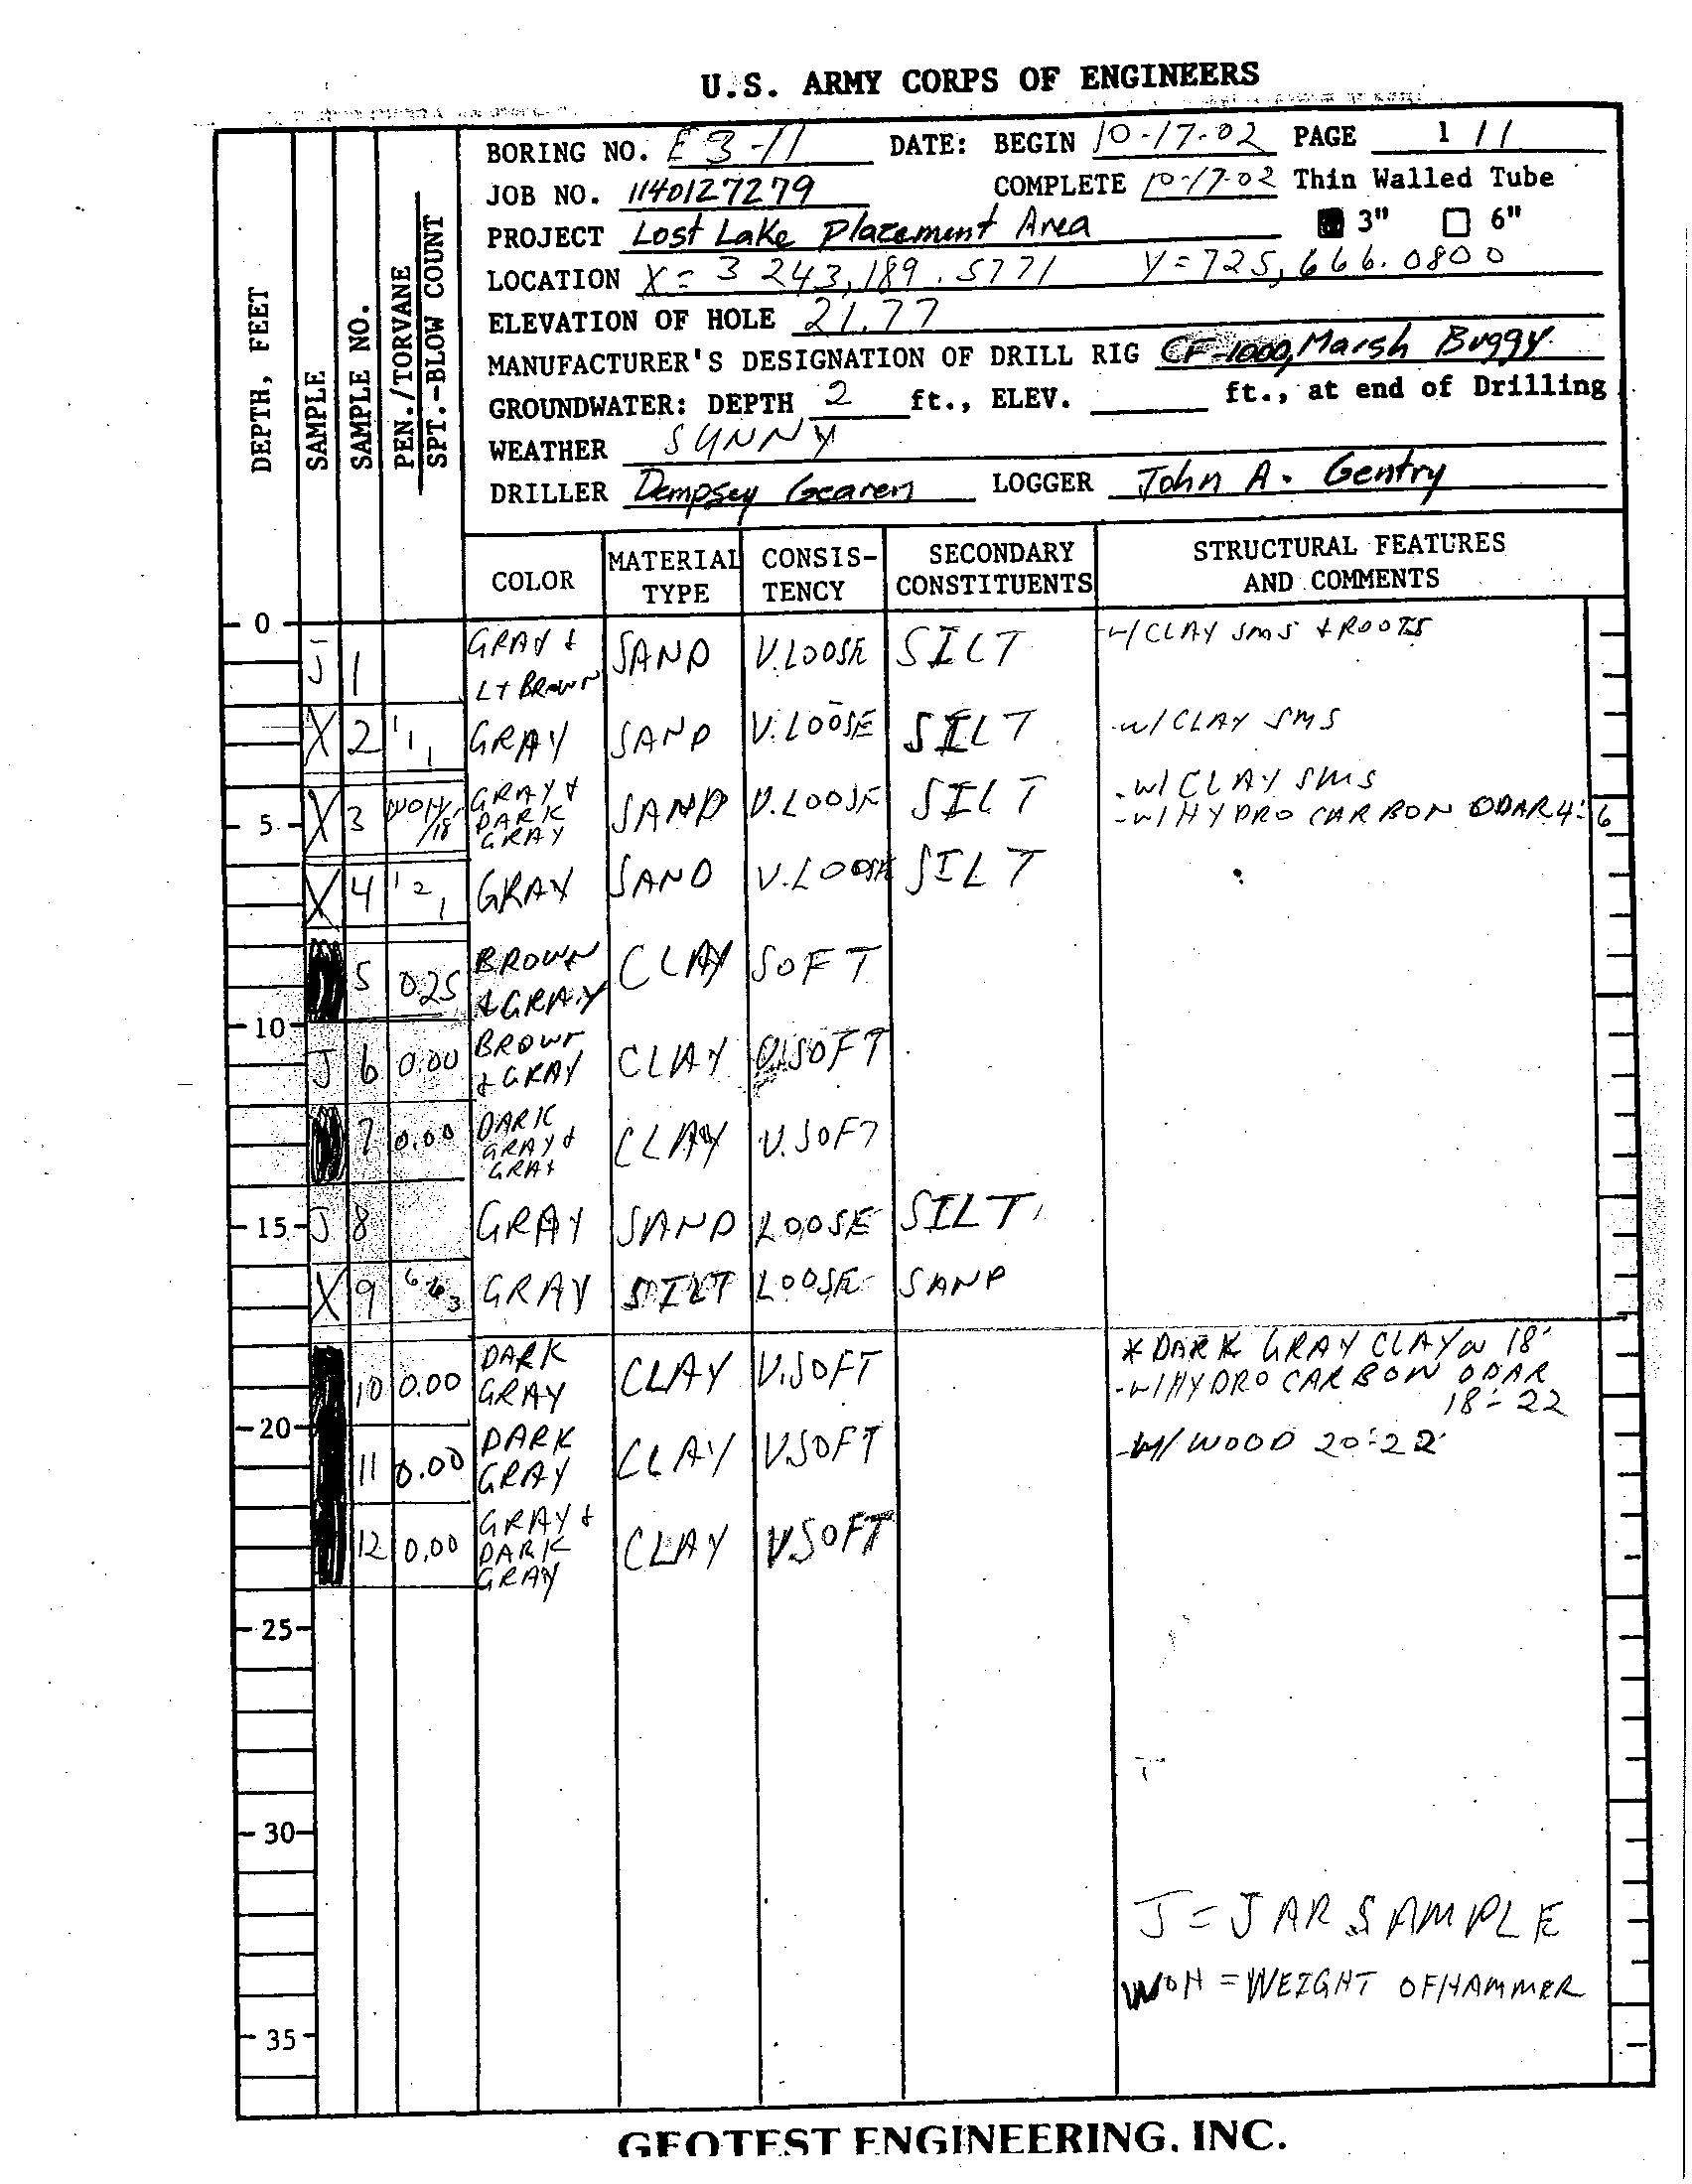 U.S. ARMY CORPS OF ENGINEERS
BORING NO. E3-11 DATE: BEGIN 10-17-02 PAGE 1 / 1
JOB NO. 1140127279 COMPLETE 10-17-02 Thin Walled Tube
PROJECT Lost Lake Placement Area 3" 6"
LOCATION X = 3 243,189.5771 Y = 725,666.0800
ELEVATION OF HOLE 21.77
MANUFACTURER'S DESIGNATION OF DRILL RIG CF-1000, Marsh Buggy
GROUNDWATER: DEPTH 2 ft., ELEV. ft., at end of Drilling
WEATHER SUNNY
DRILLER Dempsey Gearen LOGGER John A. Gentry
DEPTH, FEET
SAMPLE
SAMPLE NO.
PEN./TORVANE
SPT.-BLOW COUNT
COLOR
MATERIAL TYPE
CONSIS-TENCY
SECONDARY CONSTITUENTS
STRUCTURAL FEATURES AND COMMENTS
0
J 1 GRAY & LT BROWN SAND V.LOOSE SILT -w/CLAY SMS & ROOTS
X 2 1 1 1 GRAY SAND V.LOOSE SILT -w/CLAY SMS
5 X 3 WOH/18" GRAY & DARK GRAY SAND V.LOOSE SILT -w/CLAY SMS
-w/HYDROCARBON ODAR 4'-6
X 4 1 2 1 GRAY SAND V.LOOSE SILT
5 0.25 BROWN & GRAY CLAY SOFT
10
J 6 0.00 BROWN & GRAY CLAY V.SOFT
7 0.00 DARK GRAY & GRAY CLAY V.SOFT
15 J 8 GRAY SAND LOOSE SILT
X 9 6 6 3 GRAY SILT LOOSE SAND
10 0.00 DARK GRAY CLAY V.SOFT * DARK GRAY CLAY @ 18'
-w/HYDROCARBON ODAR
18'-22
20
11 0.00 DARK GRAY CLAY V.SOFT -w/ WOOD 20'-22'
12 0.00 GRAY & DARK GRAY CLAY V.SOFT
25
30
J = JAR SAMPLE
WOH = WEIGHT OF HAMMER
35
GEOTEST ENGINEERING, INC.